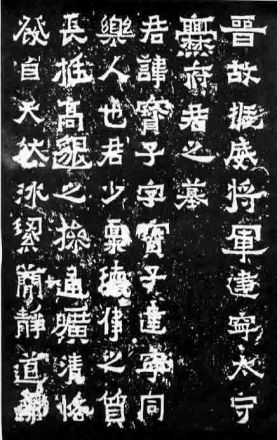 晉故振威將軍建寧太守
爨府君之墓
君諱寶子字寶子建寧同
樂人也君少稟瓌偉之質
長挺高邈之操通曠清恪
發自天然冰絜簡靜道兼